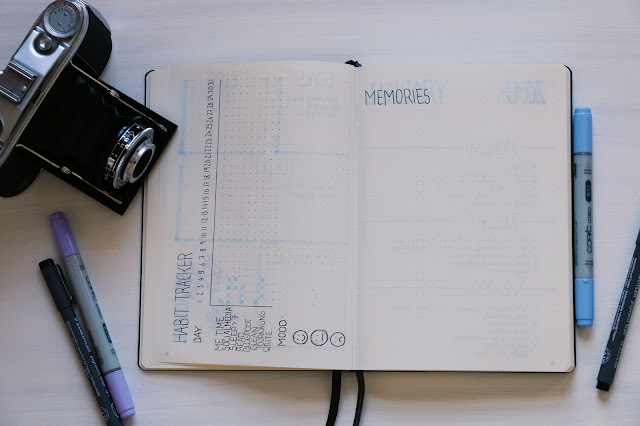 HABIT TRACKER
DAY 1 2 3 4 5 6 7 8 9 10 11 12 13 14 15 16 17 18 19 20 21 22 23 24 25 26 27 28 29 30 31
ME TIME
SOCIALMEDIA
SLEEPS 7
READ
BLOGPOST
CLEAN
JOURNALING
WRITE
MOOD:
MEMORIES
COPIC